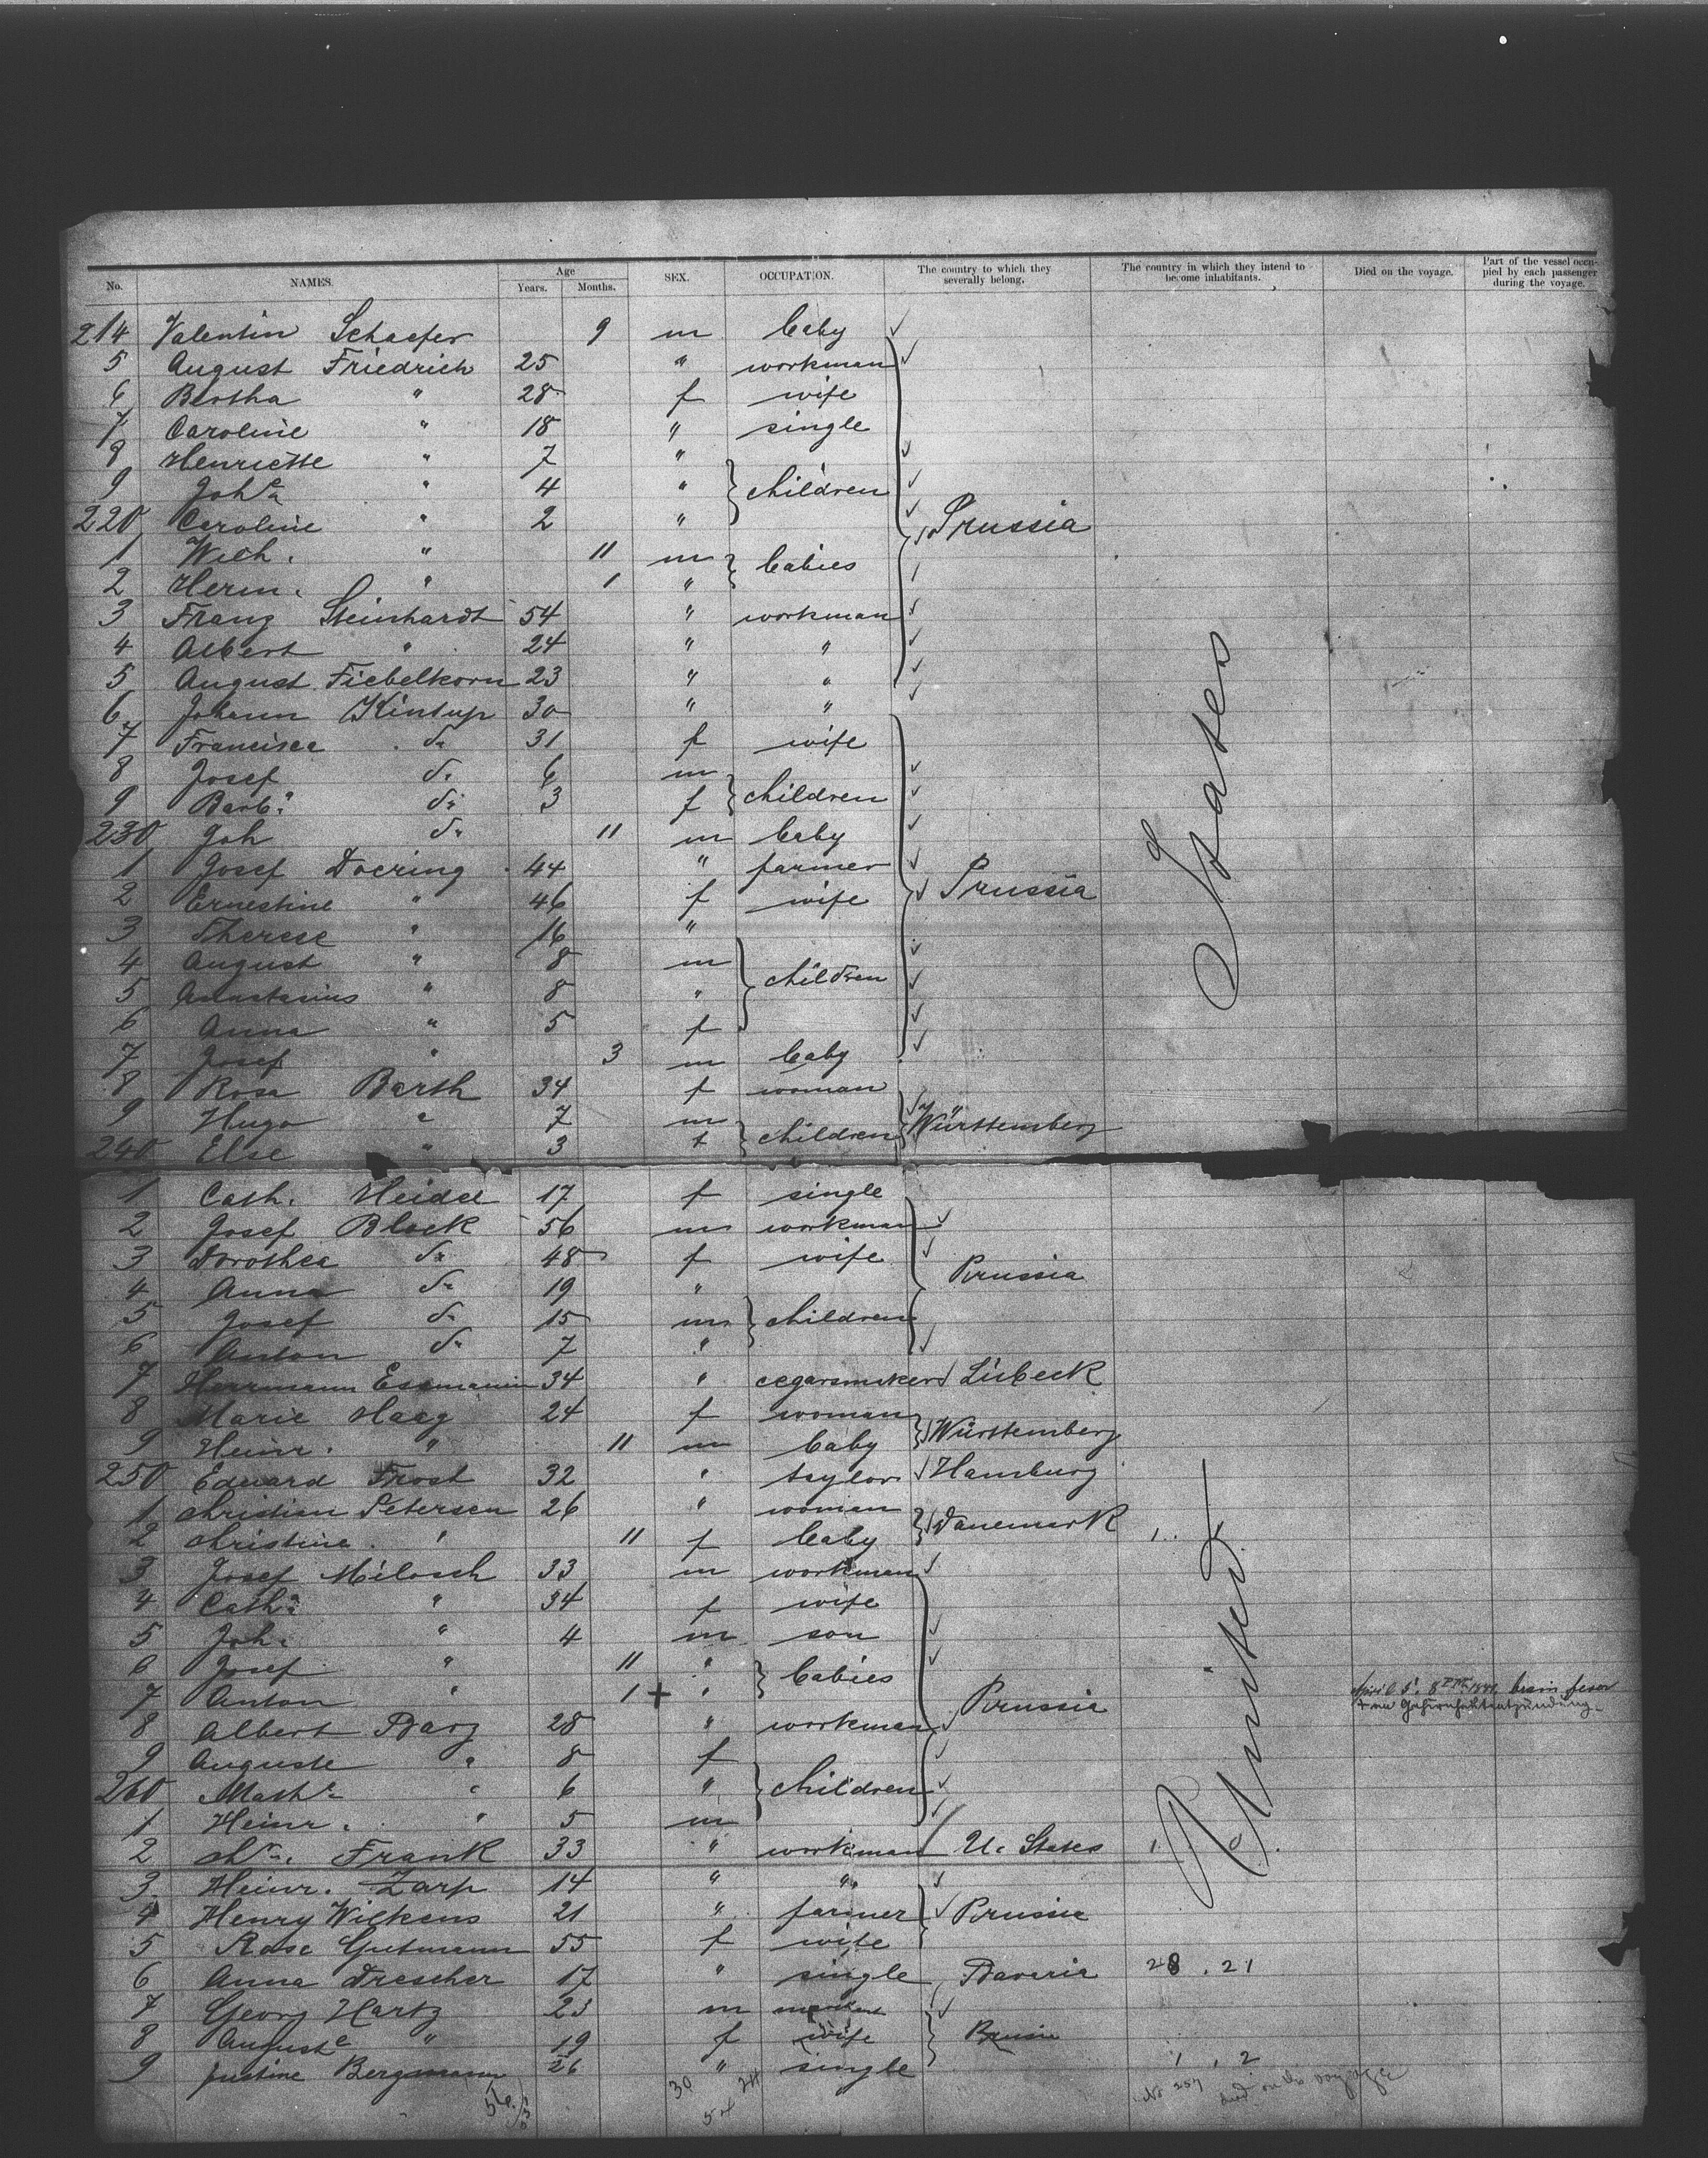 No. NAMES. Age Years. Months. SEX. OCCUPATION. The country to which they severally belong. The country in which they intend to become inhabitants. Died on the voyage. Part of the vessel occupied by each passenger during the voyage.
214 Valentin Schaefer 9 m baby
5 August Friedrich 25 " workman
6 Bertha " 28 f wife
7 Caroline " 18 " single
8 Henriette " 7 "
9 Joh.a " 4 " children
220 Caroline " 2 " Prussia
1 Wilh. " 11 m babies
2 Herm. " 1 "
3 Franz Steinhardt 54 " workman
4 Albert " 24 " "
5 August Fiebelkorn 23 " "
6 Johann Kintup 30 " "
7 Francisca do 31 f wife
8 Josef do 6 m children
9 Barb.a do 3 f
230 Joh do 11 m baby
1 Josef Doering 44 " farmer
2 Ernestine " 46 f wife Prussia
3 Therese " 16 "
4 August " 8 m children
5 Anastasius " 8 "
6 Anna " 5 f
7 Josef " 3 m baby
8 Rosa Barth 34 f woman
9 Hugo " 7 m children Württemberg
240 Else " 3 f
1 Cath. Heidel 17 f single
2 Josef Block 56 m workman
3 Dorothea do 48 f wife Prussia
4 Anna do 19 "
5 Josef do 15 m children
6 Anton do 7 "
7 Herrmann Essmann 34 " cegarsmaker Lübeck
8 Marie Haag 24 f woman Württemberg
9 Heinr. " 11 m baby
250 Eduard Frost 32 " taylor Hamburg
1 Christian Petersen 26 " woman Danemark
2 Christine " 11 f baby
3 Josef Milosch 33 m workman
4 Cath.a " 34 f wife
5 Joh. " 4 m son
6 Josef " 11 " babies
7 Anton " 1 + " Prussia brain fever
8 Albert Barz 28 " workman
9 Auguste " 8 f
260 Math.e " 6 " children
1 Heinr. " 5 m
2 Frank 33 " workman U. States
3 Heinr. Zarp 14 " "
4 Henry Wilkens 21 " farmer Prussia
5 Rosa Gutmann 55 f wife
6 Anna Drescher 17 " single Bavaria 28. 21
7 Georg Hartz 23 m
8 Auguste " 19 f wife
9 Justine Bergmann 26 " single 1, 2
30 24
54
No 257 died on the voyage
United States